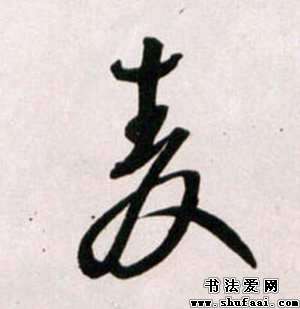 麦
书法爱网
www.shufaai.com